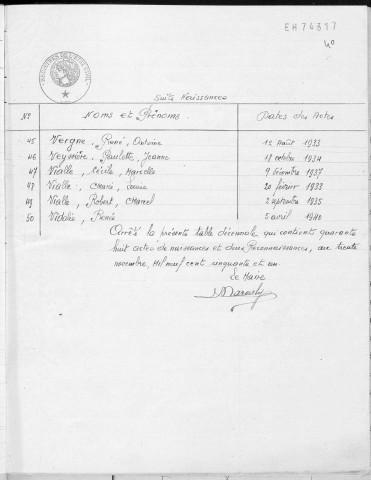 EH 76317
40
Suite Naissances
Nos Noms et Prénoms Dates des Actes
45 Vergne, René, Antoine 12 août 1933
46 Veyssière, Paulette, Jeanne 18 octobre 1934
47 Vialle, Cécile, Marcelle 9 décembre 1937
48 Vialle, Marie, Louise 20 février 1933
49 Vialle, Robert, Marcel 2 septembre 1935
50 Vidalie, Renée 5 avril 1940
Arrêté la présente table décennale qui contient quarante
huit actes de naissances et deux Reconnaissances, au trente
novembre, Mil neuf cent cinquante et un
Le Maire